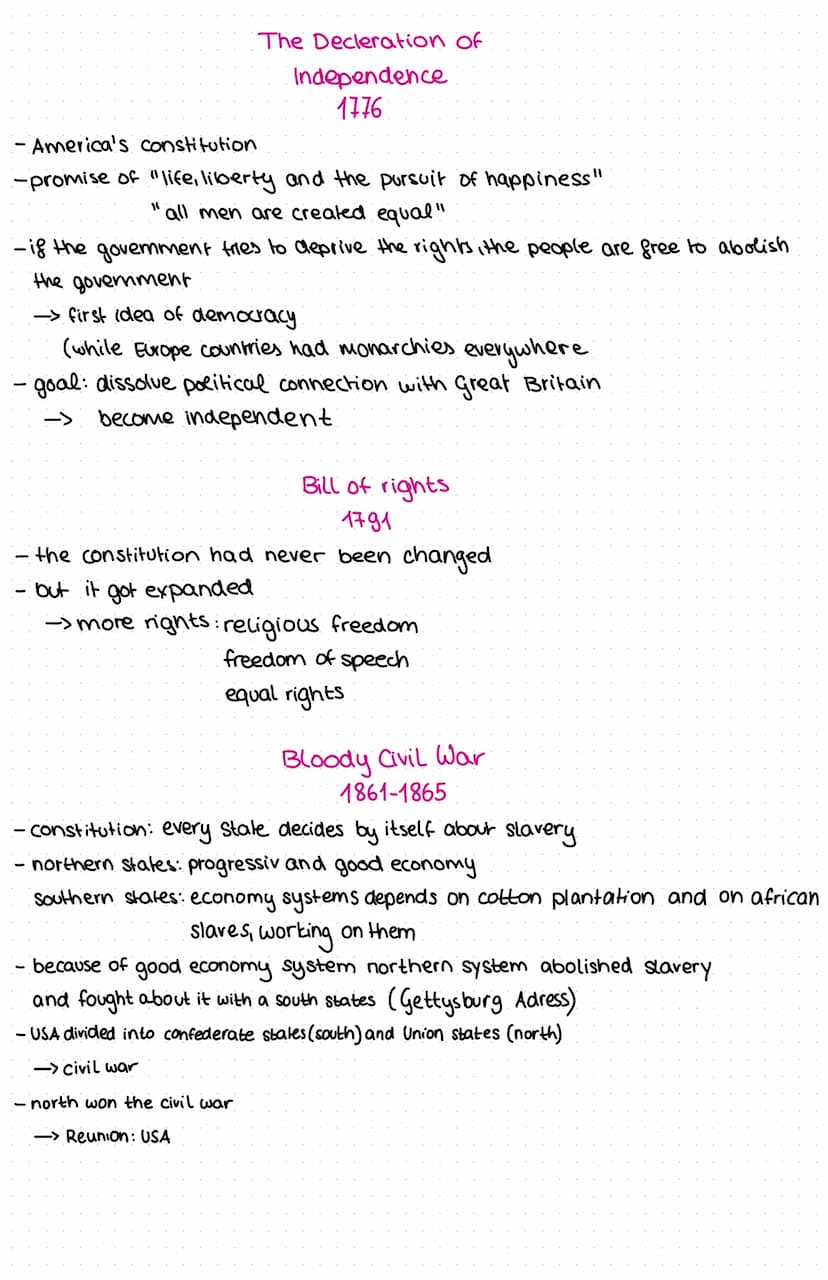 The Decleration of
Independence
1776
- America's constitution
- promise of "life, liberty and the pursuit of happiness"
"all men are created equal"
- if the government tries to deprive the rights, the people are free to abolish
the government
→ first idea of democracy
(while Europe countries had monarchies everywhere
- goal: dissolve political connection with Great Britain
→ become independent
Bill of rights
1791
- the constitution had never been changed
- but it got expanded
→ more rights: religious freedom
freedom of speech
equal rights
Bloody Civil War
1861-1865
- constitution: every state decides by itself about slavery
- northern states: progressiv and good economy
southern states: economy systems depends on cotton plantation and on african
slaves, working on them
- because of good economy system northern system abolished slavery
and fought about it with a south states (Gettysburg Adress)
- USA divided into confederate states (south) and Union states (north)
→ civil war
- north won the civil war
→ Reunion: USA